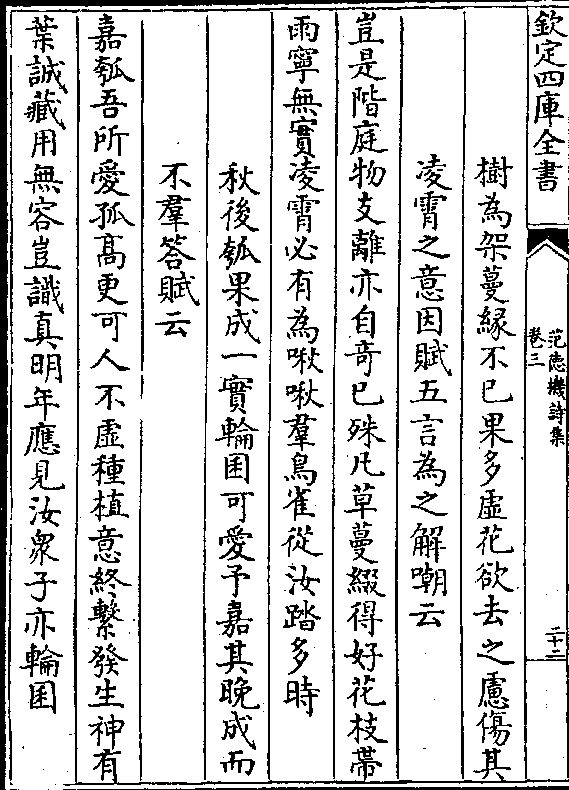 欽定四庫全書
范徳機詩集
卷三
二十二
樹為架蔓縁不已果多虛花欲去之慮傷其
凌霄之意因賦五言為之解嘲云
豈是階庭物支離亦自奇已殊凡草蔓綴得好花枝帶
雨寧無實凌霄必有為啾啾羣鳥雀從汝踏多時
秋後瓠果成一實輪囷可愛予嘉其晚成而
不羣答賦云
嘉瓠吾所愛孤髙更可人不虛種植意終繫發生神有
葉誠藏用無容豈識真明年應見汝衆子亦輪囷